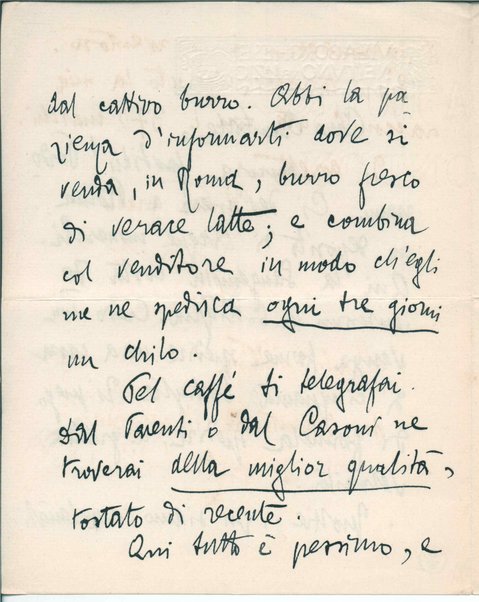 dal cattivo burro. Abbi la pa
zienza d'informarti dove si
venda, in Roma, burro fresco
di verace latte; e combina
col venditore in modo ch'egli
me ne spedisca ogni tre giorni
un chilo.
Pel caffé ti telegrafai.
Dal o dal Casoni ne
troverai della miglior qualità,
tostato di recente.
Qui tutto è pessimo, e